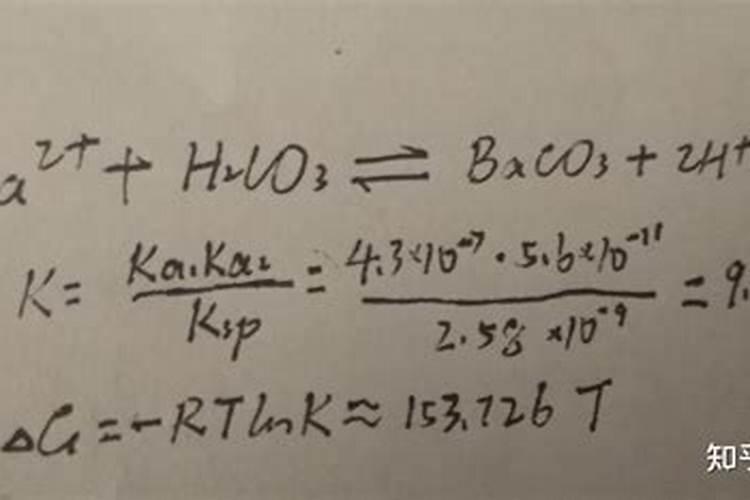 a²⁺ + H₂CO₃ ⇌ BaCO₃ + 2H⁺
K = Ka₁·Ka₂ / Ksp = 4.3×10⁻⁷ · 5.6×10⁻¹¹ / 2.58×10⁻⁹ = 9.
ΔG = -RTlnK ≈ 153.726 T
知乎